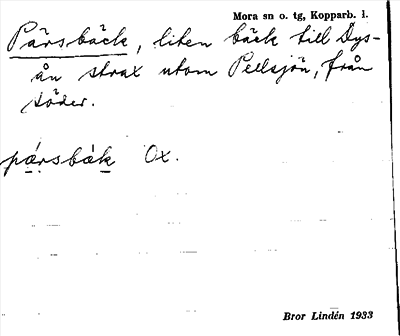 Mora sn o. tg, Kopparb. l.
Pärsbäck, liten bäck till Dys-
ån strax utom Pellsjön, från
söder.
pǽrsbàk Ox.
Bror Lindén 1933